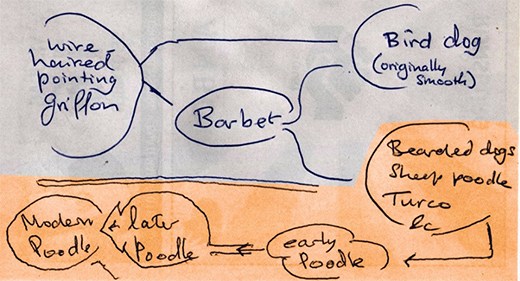 wire
haired
pointing
griffon
Bird dog
(originally
smooth)
Barbet
Bearded dogs
Sheep poodle
Turco
&c
Modern
Poodle
later
Poodle
early
Poodle